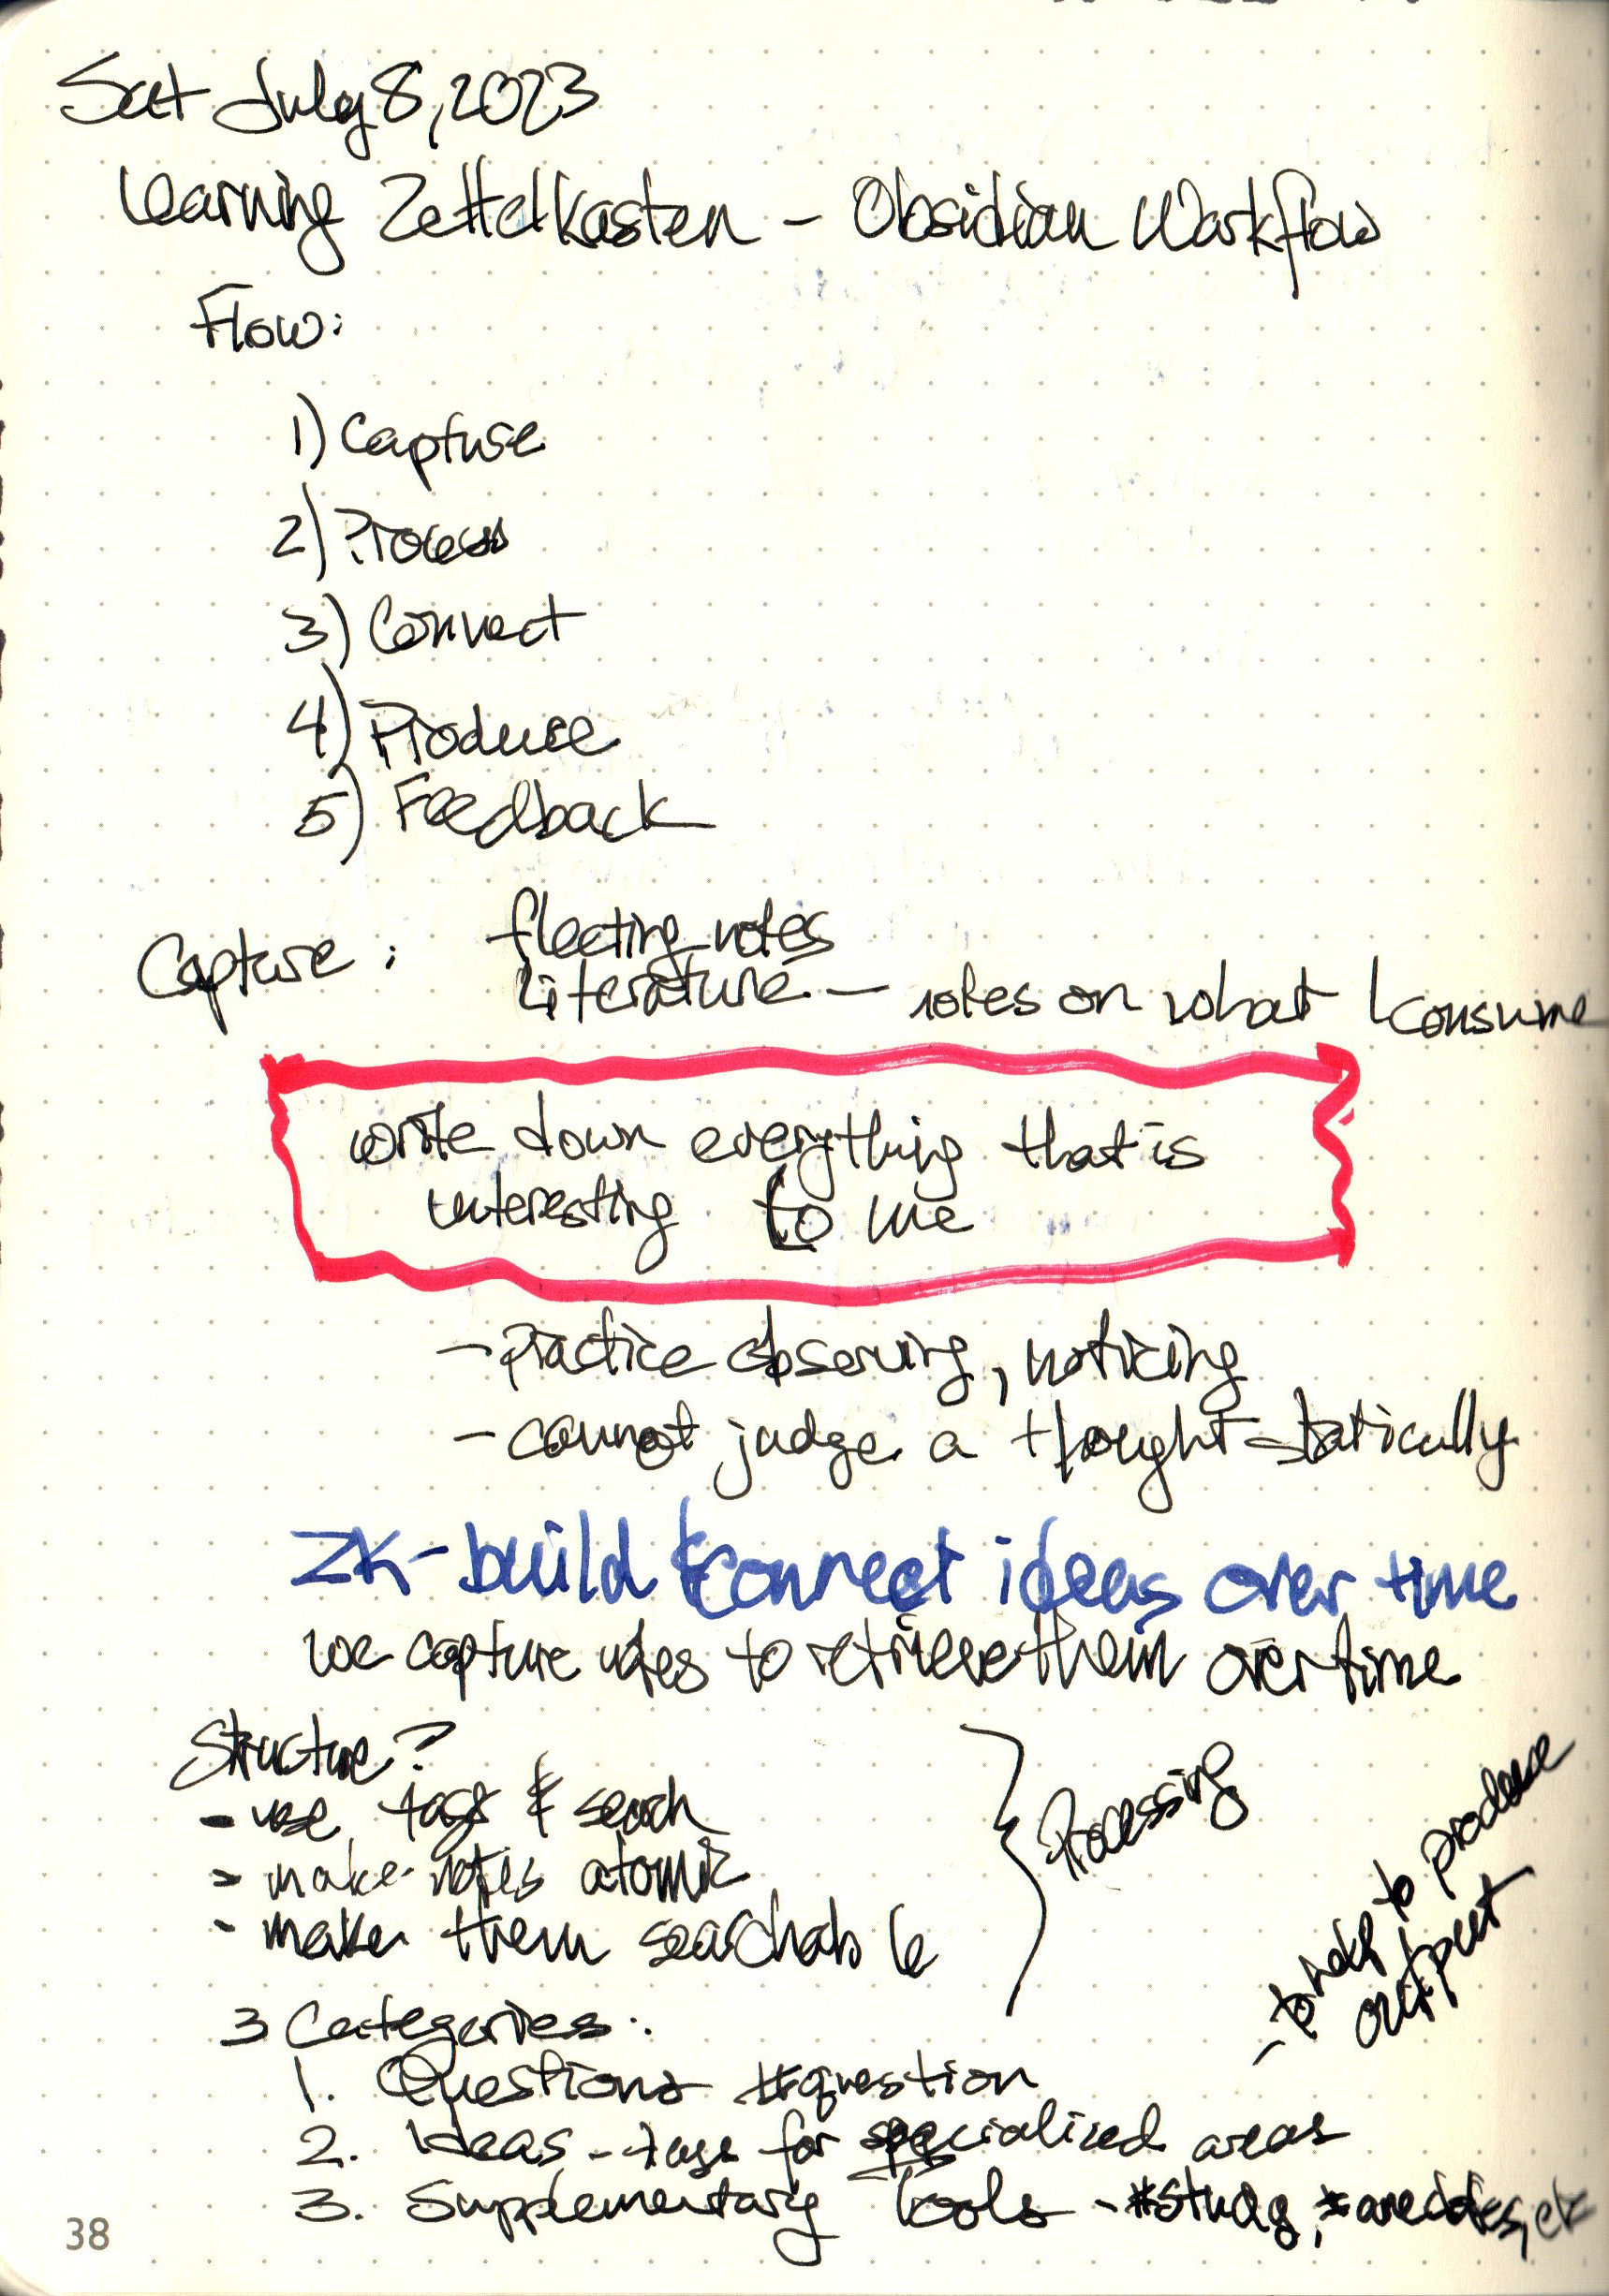 Sat July 8, 2023
Learning Zettelkasten - Obsidian Workflow
Flow:
1) Capture
2) Process
3) Connect
4) Produce
5) Feedback
Capture: fleeting notes
Literature - notes on what I consume
write down everything that is
interesting to me
- practice observing, noticing
- cannot judge a thought statically
ZK - build & connect ideas over time
we capture notes to retrieve them over time
Structure?
- use tags & search
- make notes atomic
- make them searchable
Processing
- to help to produce
output
3 Categories:
1. Questions #question
2. Ideas - tags for specialized areas
3. Supplementary Tools - #study, #anecdotes, etc
38